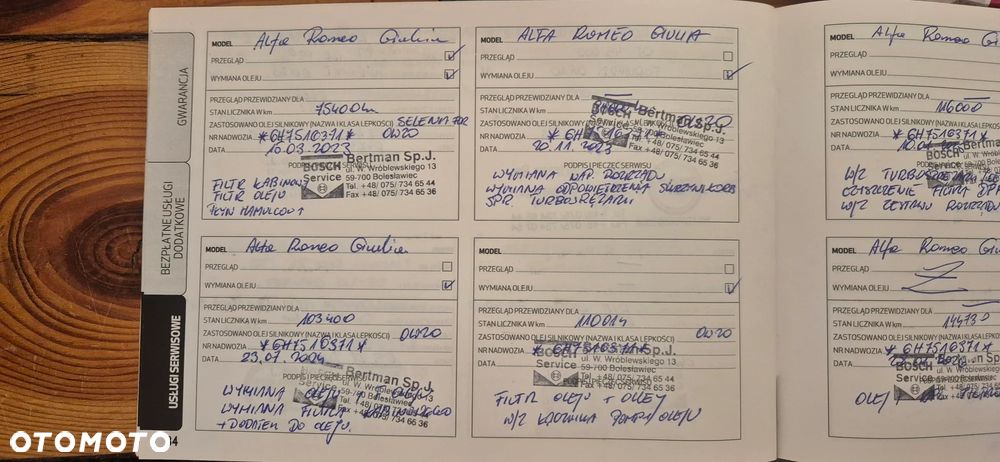 GWARANCJA
BEZPŁATNE USŁUGI
DODATKOWE
USŁUGI SERWISOWE
MODEL Alfa Romeo Giulia
PRZEGLĄD
WYMIANA OLEJU
PRZEGLĄD PRZEWIDZIANY DLA
STAN LICZNIKA W km 75400km
ZASTOSOWANO OLEJ SILNIKOWY (NAZWA I KLASA LEPKOŚCI) SELENIA
NR NADWOZIA *6H7510371* 0W20
DATA 16.03.2023
PODPIS I PIECZĘĆ SERWISU
BOSCH Service
Bertman Sp.J.
ul. W. Wróblewskiego 13
59-700 Bolesławiec
Tel. +48/ 075/ 734 65 44
Fax +48/ 075/ 734 65 36
FILTR KABINOWY
FILTR OLEJU
PŁYN HAMULCOWY
MODEL ALFA ROMEO GIULIA
PRZEGLĄD
WYMIANA OLEJU
PRZEGLĄD PRZEWIDZIANY DLA
STAN LICZNIKA W km
0W20
NR NADWOZIA
DATA 20.11.2023
PODPIS I PIECZĘĆ SERWISU
BOSCH Service
Bertman Sp.J.
ul. W. Wróblewskiego 13
59-700 Bolesławiec
Tel. +48/ 075/ 734 65 44
Fax +48/ 075/ 734 65 36
WYMIANA NAP. ROZRZĄDU
WYMIANA ODPOWIETRZENIA SKRZYNI KORB
SPR. TURBOSPRĘŻARKI
MODEL Alfa Romeo
PRZEGLĄD
WYMIANA OLEJU
PRZEGLĄD PRZEWIDZIANY DLA
STAN LICZNIKA W km 116000
ZASTOSOWANO OLEJ SILNIKOWY
NR NADWOZIA *6H7510371*
DATA
BOSCH Service
W/Z
CZYSZCZENIE FILTRA DPF
W/Z ZESTAWU ROZRZĄDU
MODEL Alfa Romeo Giulia
PRZEGLĄD
WYMIANA OLEJU
PRZEGLĄD PRZEWIDZIANY DLA
STAN LICZNIKA W km 103400
ZASTOSOWANO OLEJ SILNIKOWY (NAZWA I KLASA LEPKOŚCI) 0W20
NR NADWOZIA *6H7510371*
DATA 23.07.2024
PODPIS I PIECZĘĆ SERWISU
Service
Bertman Sp.J.
ul. W. Wróblewskiego 13
59-700 Bolesławiec
Tel. +48/ 075/ 734 65 44
Fax +48/ 075/ 734 65 36
WYMIANA OLEJU
WYMIANA FILTRA
+ DODATEK DO OLEJU.
MODEL
PRZEGLĄD
WYMIANA OLEJU
PRZEGLĄD PRZEWIDZIANY DLA
STAN LICZNIKA W km 110014
ZASTOSOWANO OLEJ SILNIKOWY (NAZWA I KLASA LEPKOŚCI) 0W20
NR NADWOZIA *6H7510371*
DATA
PODPIS I PIECZĘĆ SERWISU
BOSCH Service
Bertman Sp.J.
ul. W. Wróblewskiego 13
59-700 Bolesławiec
Tel. +48/ 075/ 734 65 44
Fax +48/ 075/ 734 65 36
FILTR OLEJU + OLEJ
W/Z POMPY OLEJU
MODEL Alfa Romeo
PRZEGLĄD
WYMIANA OLEJU
PRZEGLĄD PRZEWIDZIANY DLA
STAN LICZNIKA W km
ZASTOSOWANO OLEJ SILNIKOWY
NR NADWOZIA *6H7510371*
DATA
BOSCH Service
OLEJ
OTOMOTO